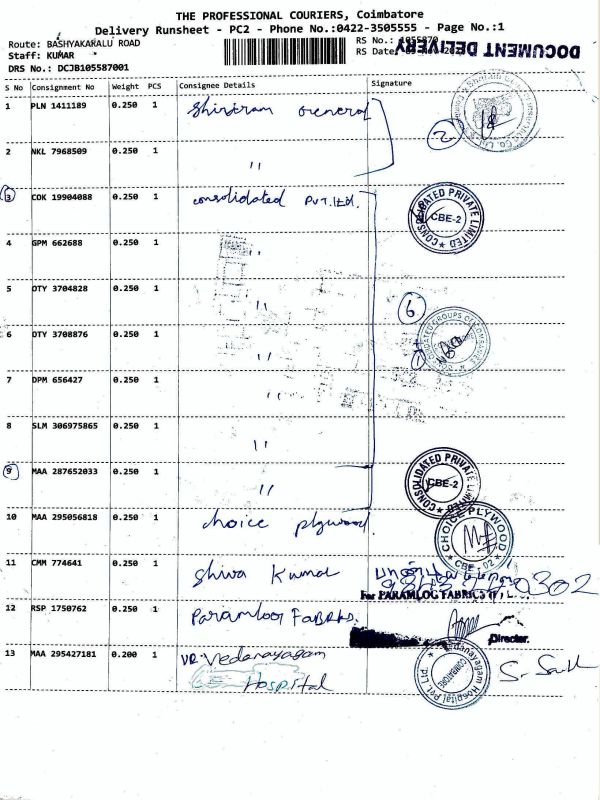 THE PROFESSIONAL COURIERS, Coimbatore
Delivery Runsheet - PC2 - Phone No.:0422-3505555 - Page No.:1
Route: BASHYAKARALU ROAD
RS No.: 1055870
Staff: KUMAR
RS Date
DOCUMENT DELIVERY
DRS No.: DCJB105587001
S No Consignment No Weight PCS Consignee Details Signature
1 PLN 1411189 0.250 1 Shriram General
2
2 NKL 7968509 0.250 1 "
3 COK 19904088 0.250 1 consolidated Pvt.ltd.
CONSOLIDATED PRIVATE LIMITED
CBE-2
4 GPM 662688 0.250 1 "
5 OTY 3704828 0.250 1 "
6
6 OTY 3708876 0.250 1 "
CONSOLIDATED GROUPS OF COMPANIES
7 DPM 656427 0.250 1 "
8 SLM 306975865 0.250 1 "
9 MAA 287652033 0.250 1 "
CONSOLIDATED PRIVATE LIMITED
CBE-2
10 MAA 295056818 0.250 1 choice plywood
CHOICE PLYWOOD
CBE - 02
11 CMM 774641 0.250 1 Shiva Kumar
For PARAMLOG FABRICS
12 RSP 1750762 0.250 1 Paramlog Fabrks.
Director.
13 MAA 295427181 0.200 1 VR. Vedanayagam
Hospital
Vedanayagam Hospital Pvt. Ltd.
COIMBATORE